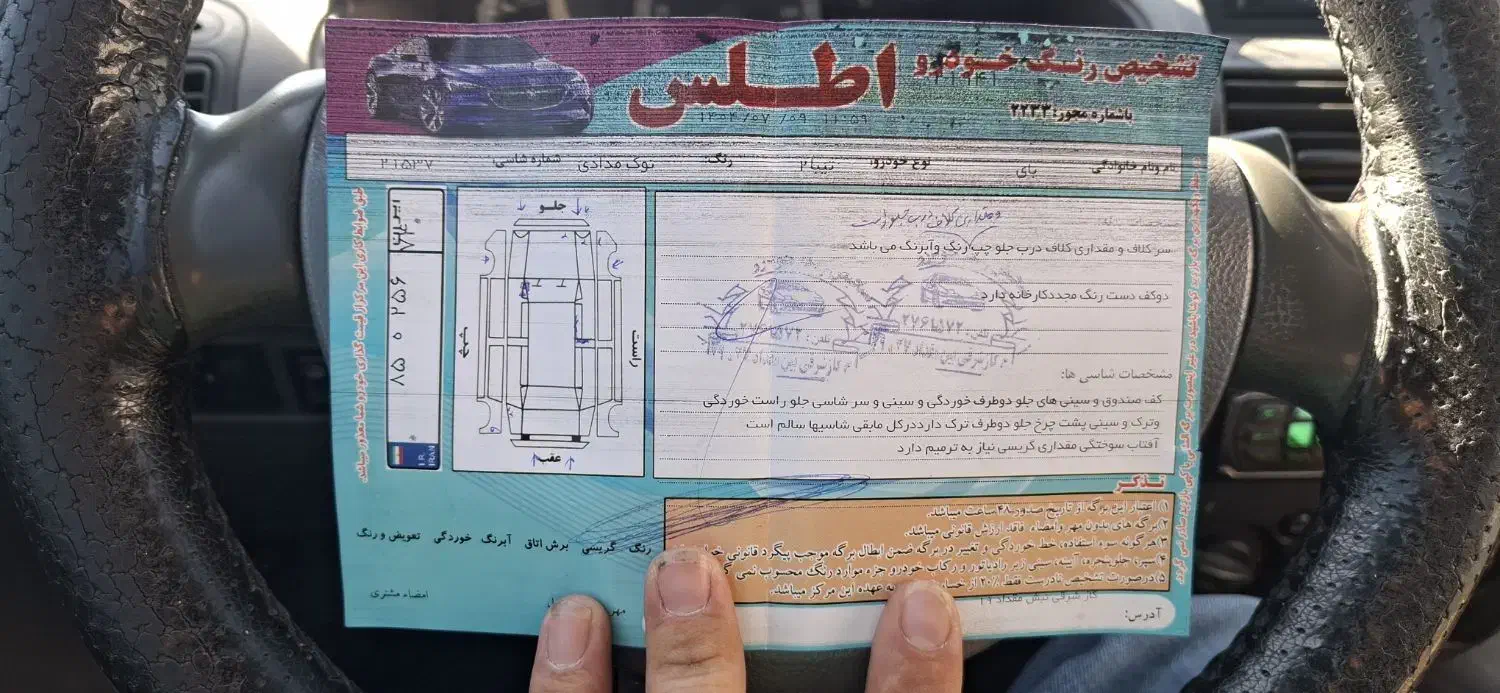 تشخیص رنگ خودرو
اطلس
باشماره مجوز: ۲۲۳۳
۱۴۰۴/۰۷/۰۹ ۱۱:۵۹
نام ونام خانوادگی: بای نوع خودرو: تیبا۲ رنگ: نوک مدادی شماره شاسی: ۲۱۵۳۷
جلو
چپ
راست
عقب
۸۵ ۵ ۲۵۶
I.R.
IRAN
سر کلاف و مقداری کلاف درب جلو چپ رنگ وآبرنگ می باشد
دوکف دست رنگ مجددکارخانه دارد
مشخصات شاسی ها:
کف صندوق و سینی های جلو دوطرف خوردگی و سینی و سر شاسی جلو راست خوردگی
وترک و سینی پشت چرخ جلو دوطرف ترک دارددرکل مابقی شاسیها سالم است
آفتاب سوختگی مقداری گریسی نیاز به ترمیم دارد
تذکر
۱) اعتبار این برگه از تاریخ صدور ۴۸ ساعت میباشد.
۲) برگه های بدون مهر وامضاء فاقد ارزش قانونی میباشد.
۳) هرگونه سوء استفاده، خط خوردگی و تغییر در برگه ضمن ابطال برگه موجب پیگرد قانونی
۴) سپر، جلوپنجره، آیینه، سینی زیر رادیاتور و رکاب خودرو جزء موارد رنگ محسوب نمی
۵) درصورت تشخیص نادرست فقط ۲۰٪ از به عهده این مرکز میباشد.
رنگ گریسی برش اتاق آبرنگ خوردگی تعویض و رنگ
امضاء مشتری
مهر
آدرس: